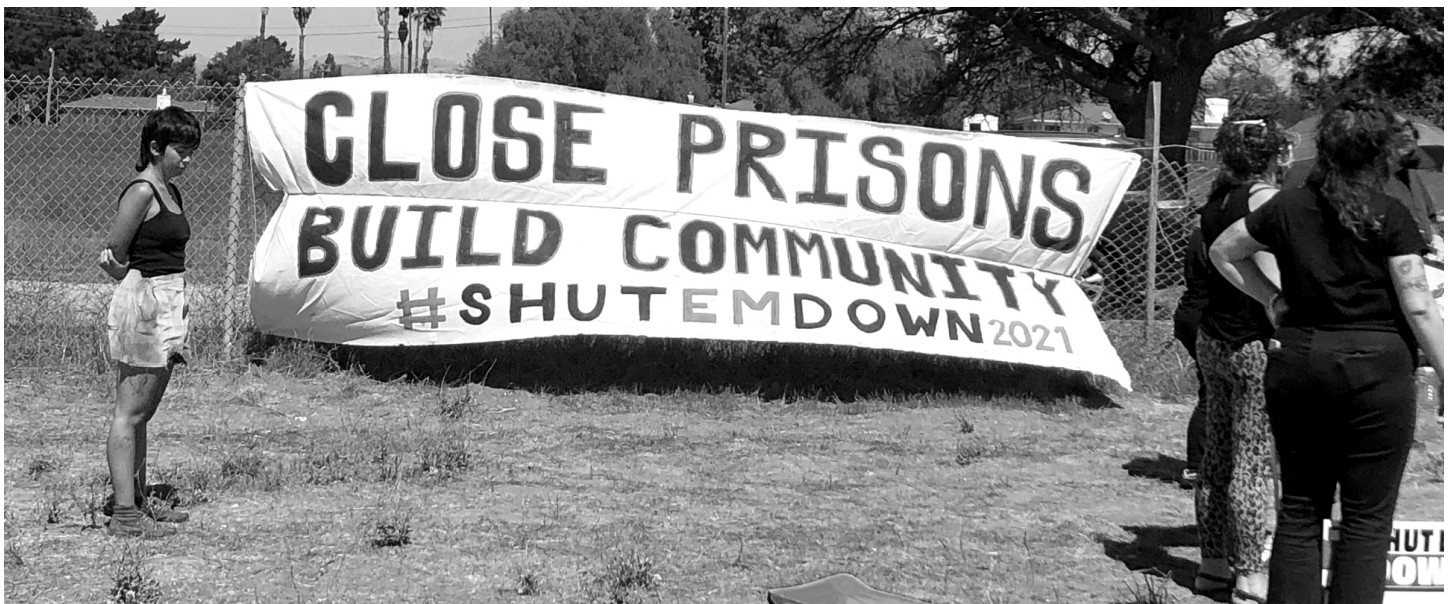 CLOSE PRISONS
BUILD COMMUNITY
#SHUTEMDOWN 2021
SHUT